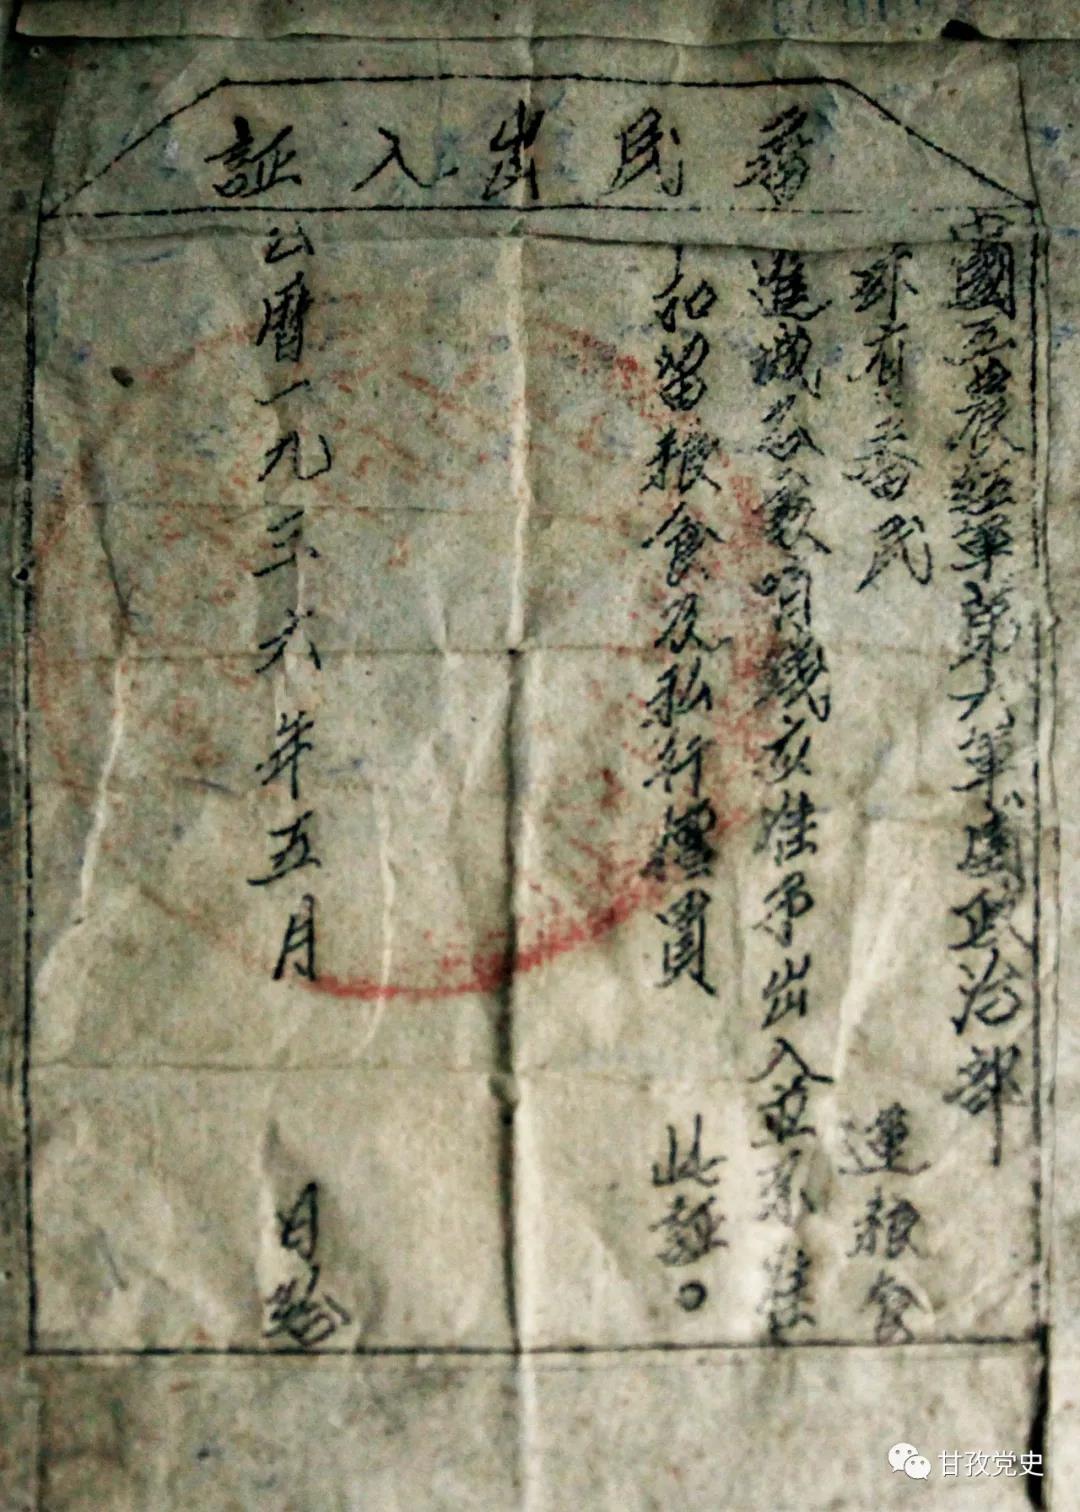 番民出入証
中國工農紅軍第六軍團政治部
玆有番民 運粮食
進城 准予出入並不准
扣留粮食及私行買 此証。
公曆一九三六年五月 日
甘孜党史